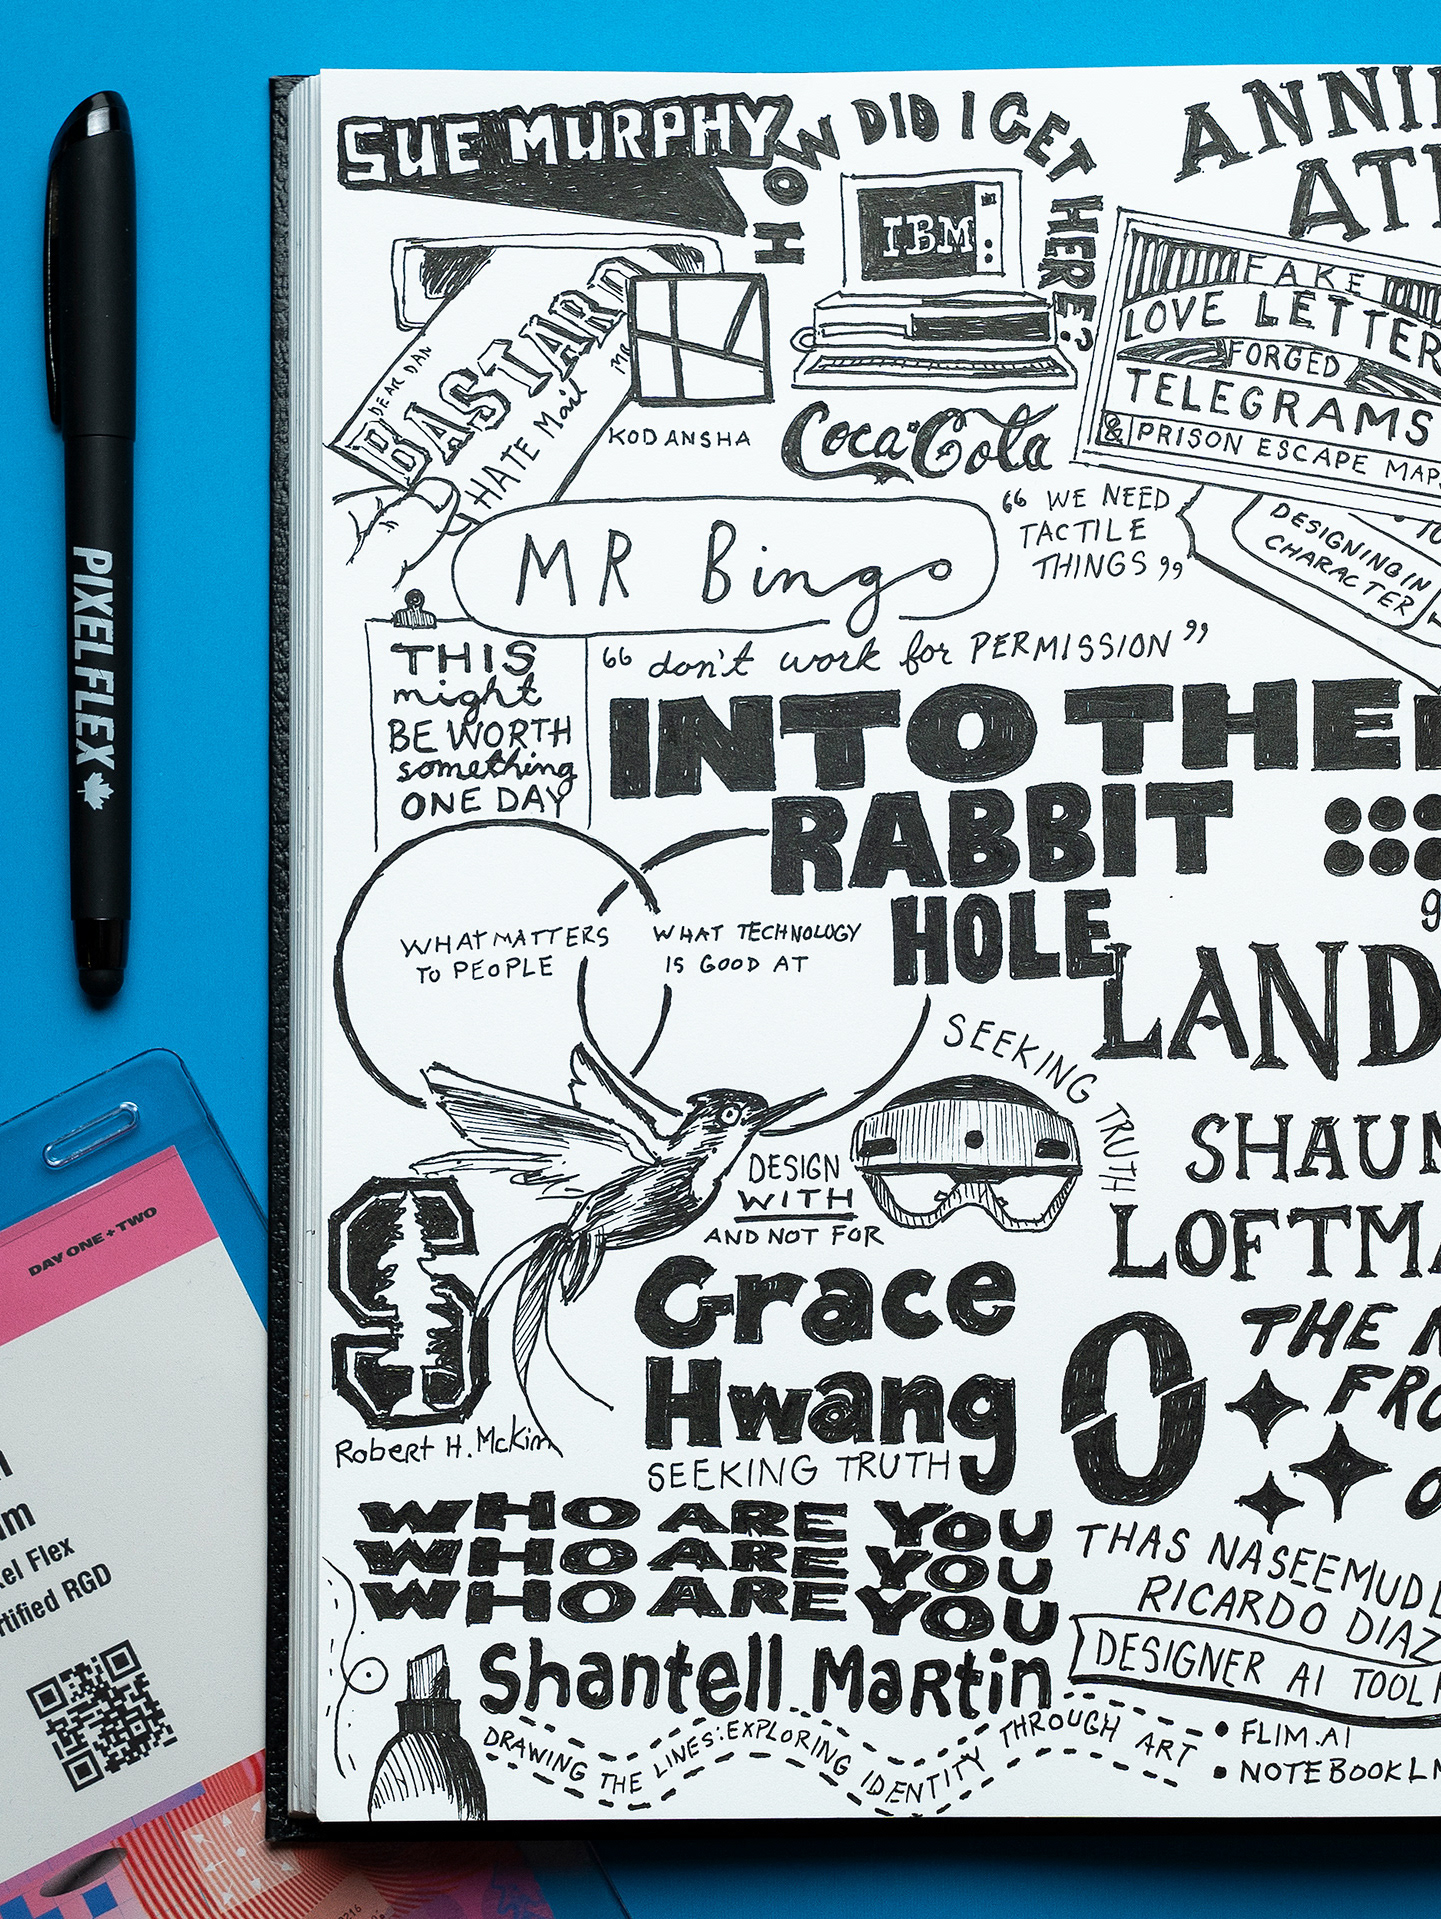 SUE MURPHY
HOW DID I GET HERE?
IBM
DEAR DAN
BASTARD
HATE Mail
MR
KODANSHA
Coca-Cola
ANNI
AT
FAKE
LOVE LETTER
FORGED
TELEGRAMS
& PRISON ESCAPE MAPS
DESIGNING IN
CHARACTER
TO
MR Bingo
“ WE NEED
TACTILE
THINGS ”
“ don't work for PERMISSION ”
THIS
might
BE WORTH
something
ONE DAY
INTO THE
RABBIT
HOLE
g
LAND
WHAT MATTERS
TO PEOPLE
WHAT TECHNOLOGY
IS GOOD AT
SEEKING TRUTH
DESIGN
WITH
AND NOT FOR
S
Robert H. McKim
Grace
Hwang
SEEKING TRUTH
SHAUN
LOFTMA
THE N
FRO
O
WHO ARE YOU
WHO ARE YOU
WHO ARE YOU
Shantell Martin
DRAWING THE LINES: EXPLORING IDENTITY THROUGH ART
THAS NASEEMUDD
RICARDO DIAZ
DESIGNER AI TOOL
• FLIM.AI
• NOTEBOOKLM
PIXELFLEX
DAY ONE + TWO
m
xel Flex
rtified RGD